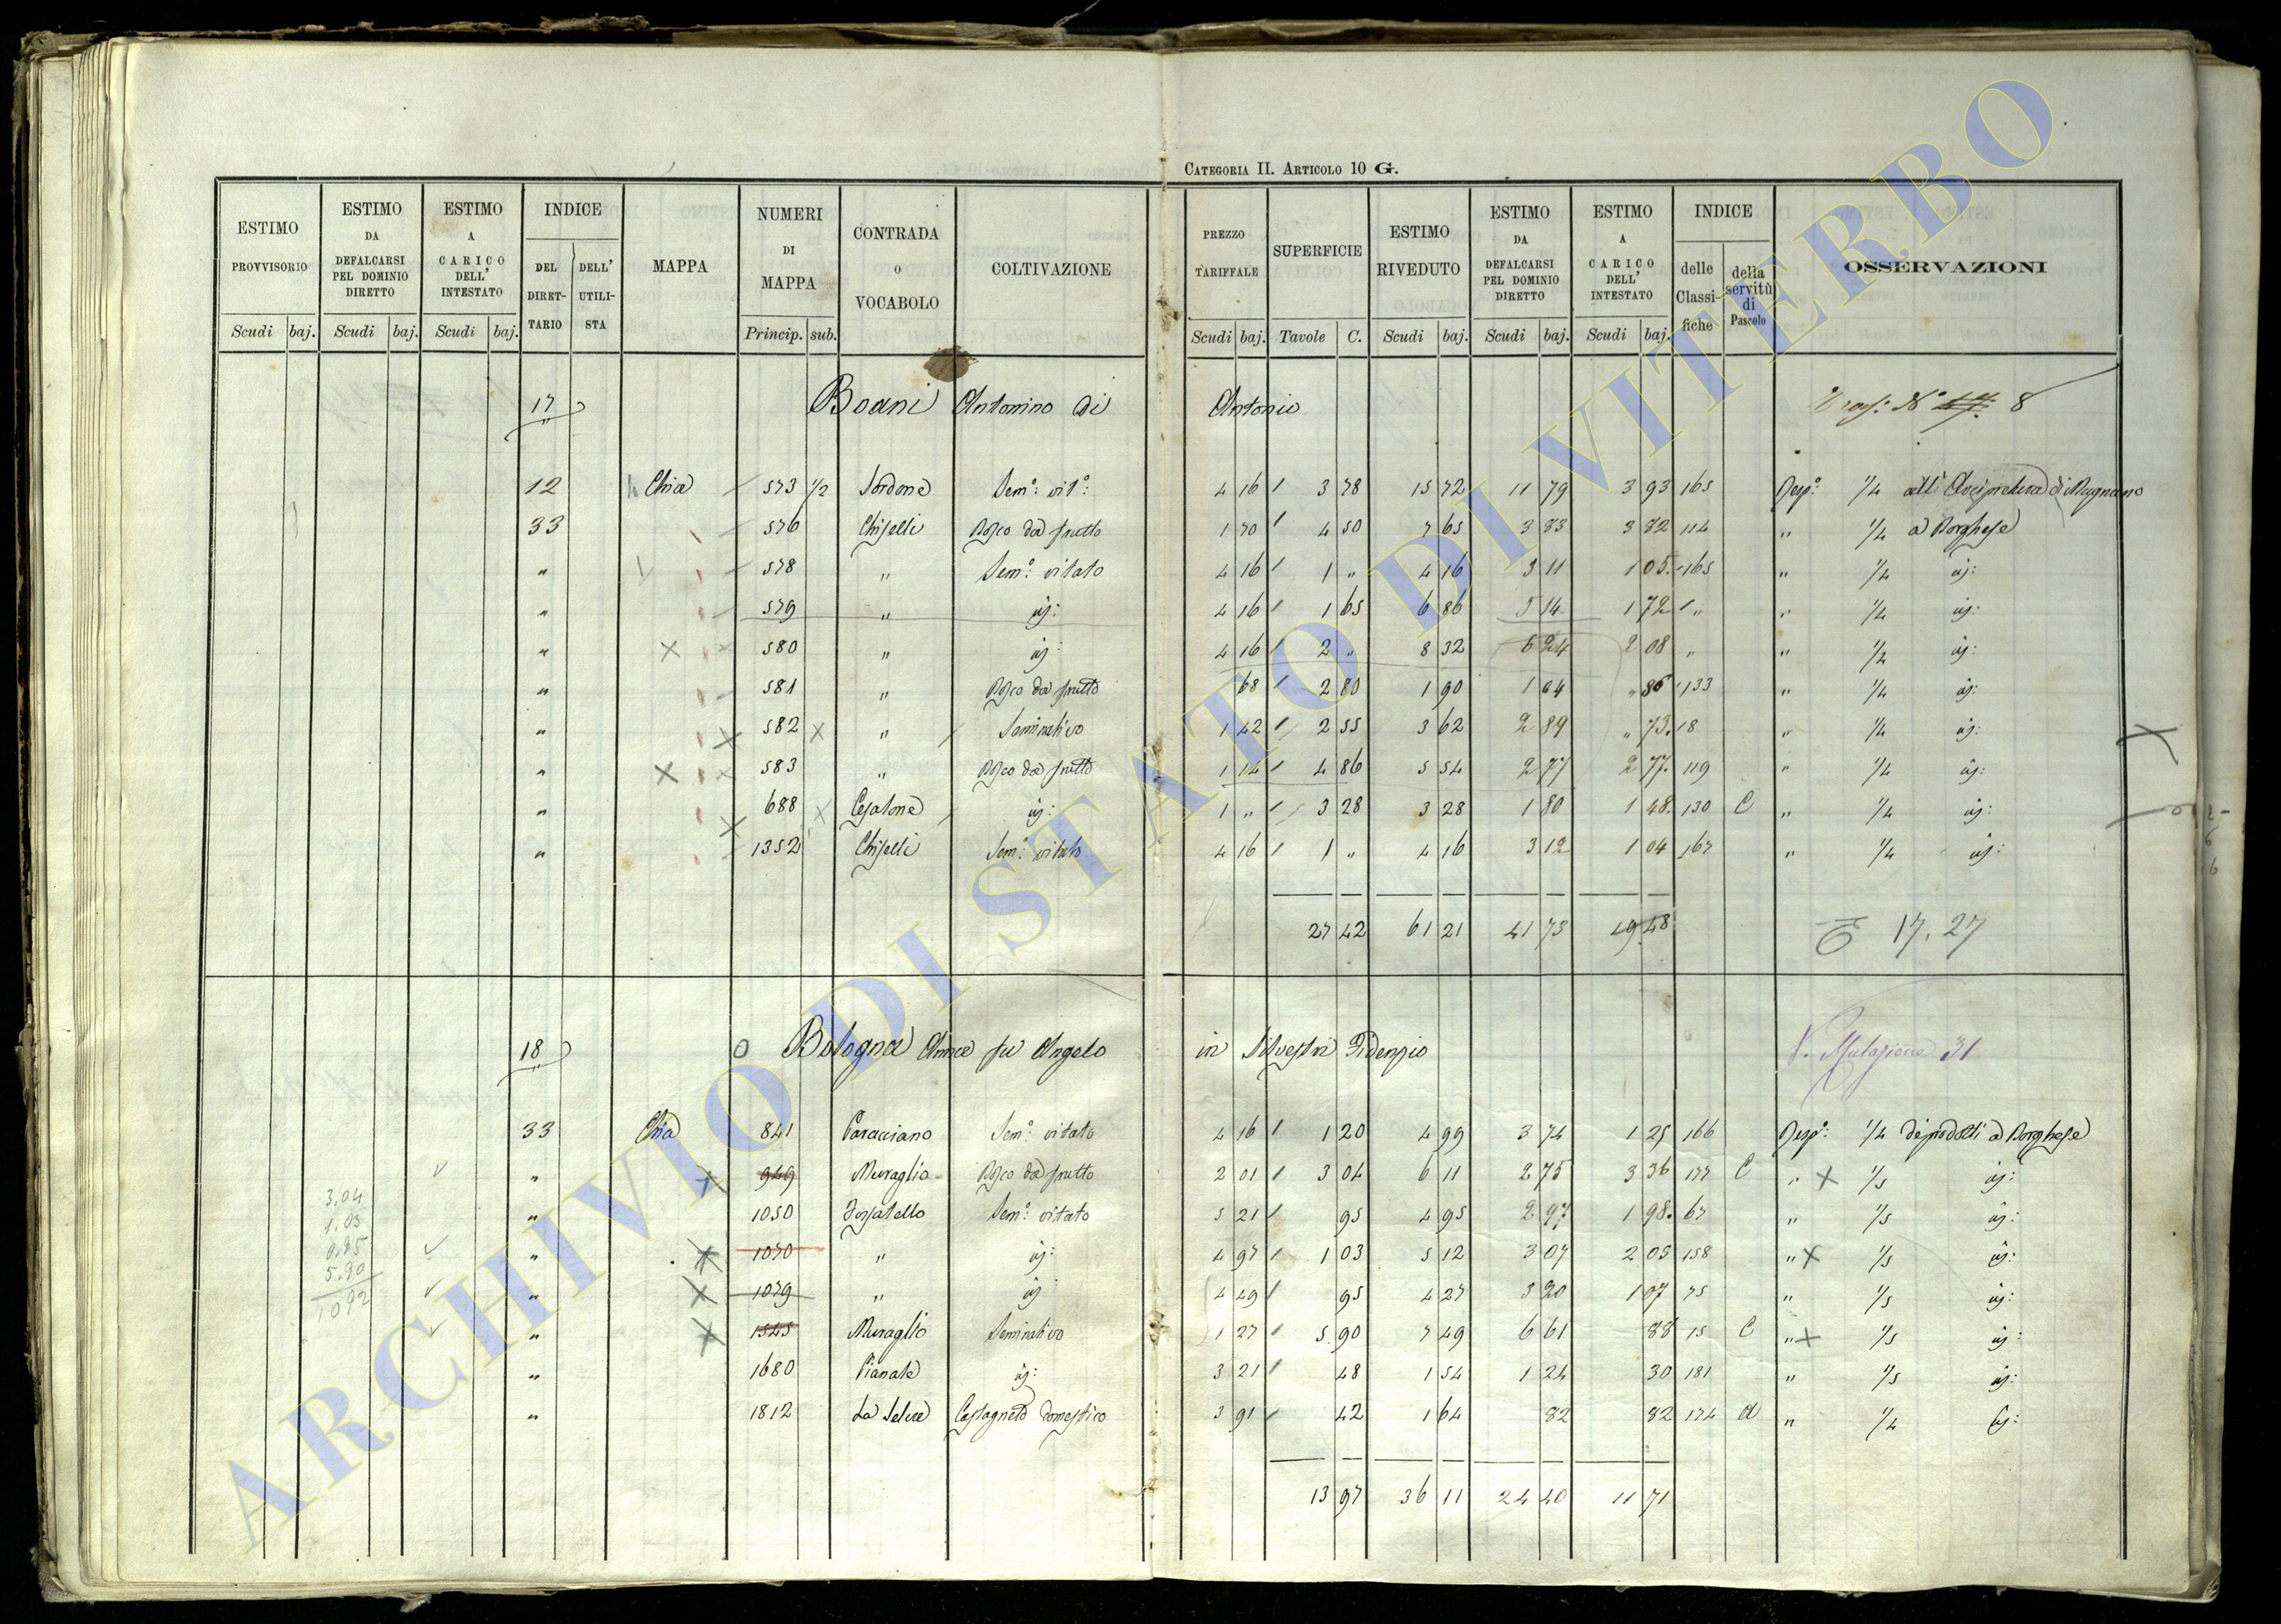 CATEGORIA II. ARTICOLO 10 G.
ESTIMO PROVVISORIO Scudi baj. ESTIMO DA DEFALCARSI PEL DOMINIO DIRETTO Scudi baj. ESTIMO A CARICO DELL' INTESTATO Scudi baj. INDICE DEL DIRET-TARIO DELL' UTILI-STA MAPPA NUMERI DI MAPPA Princip. sub. CONTRADA O VOCABOLO COLTIVAZIONE PREZZO TARIFFALE Scudi baj. SUPERFICIE Tavole C. ESTIMO RIVEDUTO Scudi baj. ESTIMO DA DEFALCARSI PEL DOMINIO DIRETTO Scudi baj. ESTIMO A CARICO DELL' INTESTATO Scudi baj. INDICE delle Classi-fiche della servitù di Pascolo OSSERVAZIONI
17 Boani Antonino di Antonio 8
12 Chia 573 1/2 Sordone Sem.o vit.o 4 16 3 78 15 72 11 79 3 93 165 Risp.e 1/4 all'Arcipretura di Mugnano
33 576 Chiselli Bosco da frutto 1 70 4 50 7 65 3 83 3 82 114 " 1/4 a Borghese
" 578 " Sem.o vitato 4 16 1 " 4 16 3 11 1 05 165 " 1/4 id:
" 579 " id: 4 16 1 65 6 86 5 14 1 72 " " 1/4 id:
" 580 " id: 4 16 2 " 8 32 6 24 2 08 " " 1/4 id:
" 581 " Bosco da frutto 68 2 80 1 90 1 04 " 86 133 " 1/4 id:
" 582 " Seminativo 1 42 2 55 3 62 2 89 " 73 18 " 1/4 id:
" 583 " Bosco da frutto 1 14 4 86 5 54 2 77 2 77 119 " 1/4 id:
" 688 Cesalone id: 1 " 3 28 3 28 1 80 1 48 130 C " 1/4 id:
" 1352 Chiselli Sem.o vitato 4 16 1 " 4 16 3 12 1 04 167 " 1/4 id:
27 42 61 21 41 73 19 48 17.27
18 O Bologna Anna fu Angelo in Silvestri Fidenzio V. Mutazione 31
33 Chia 841 Caracciano Sem.o vitato 4 16 1 20 4 99 3 74 1 25 166 Risp.e 1/4 dei prodotti a Borghese
" 949 Muraglio Bosco da frutto 2 01 3 04 6 11 2 75 3 36 177 C " 1/5 id:
" 1050 Fossatello Sem.o vitato 5 21 95 4 95 2 97 1 98 67 " 1/5 id:
" 1070 " id: 4 97 1 03 5 12 3 07 2 05 158 " 1/5 id:
" 1079 " id: 4 49 95 4 27 3 20 1 07 75 " 1/5 id:
" 1545 Muraglio Seminativo 1 27 5 90 7 49 6 61 88 15 C " 1/5 id:
" 1680 Pianale id: 3 21 48 1 54 1 24 30 181 " 1/5 id:
" 1812 La Selva Castagneto domestico 3 91 42 1 64 82 82 174 a " 1/4 id:
3,04
1.03
0.95
5.90
1092
13 97 36 11 24 40 11 71
ARCHIVIO DI STATO DI VITERBO